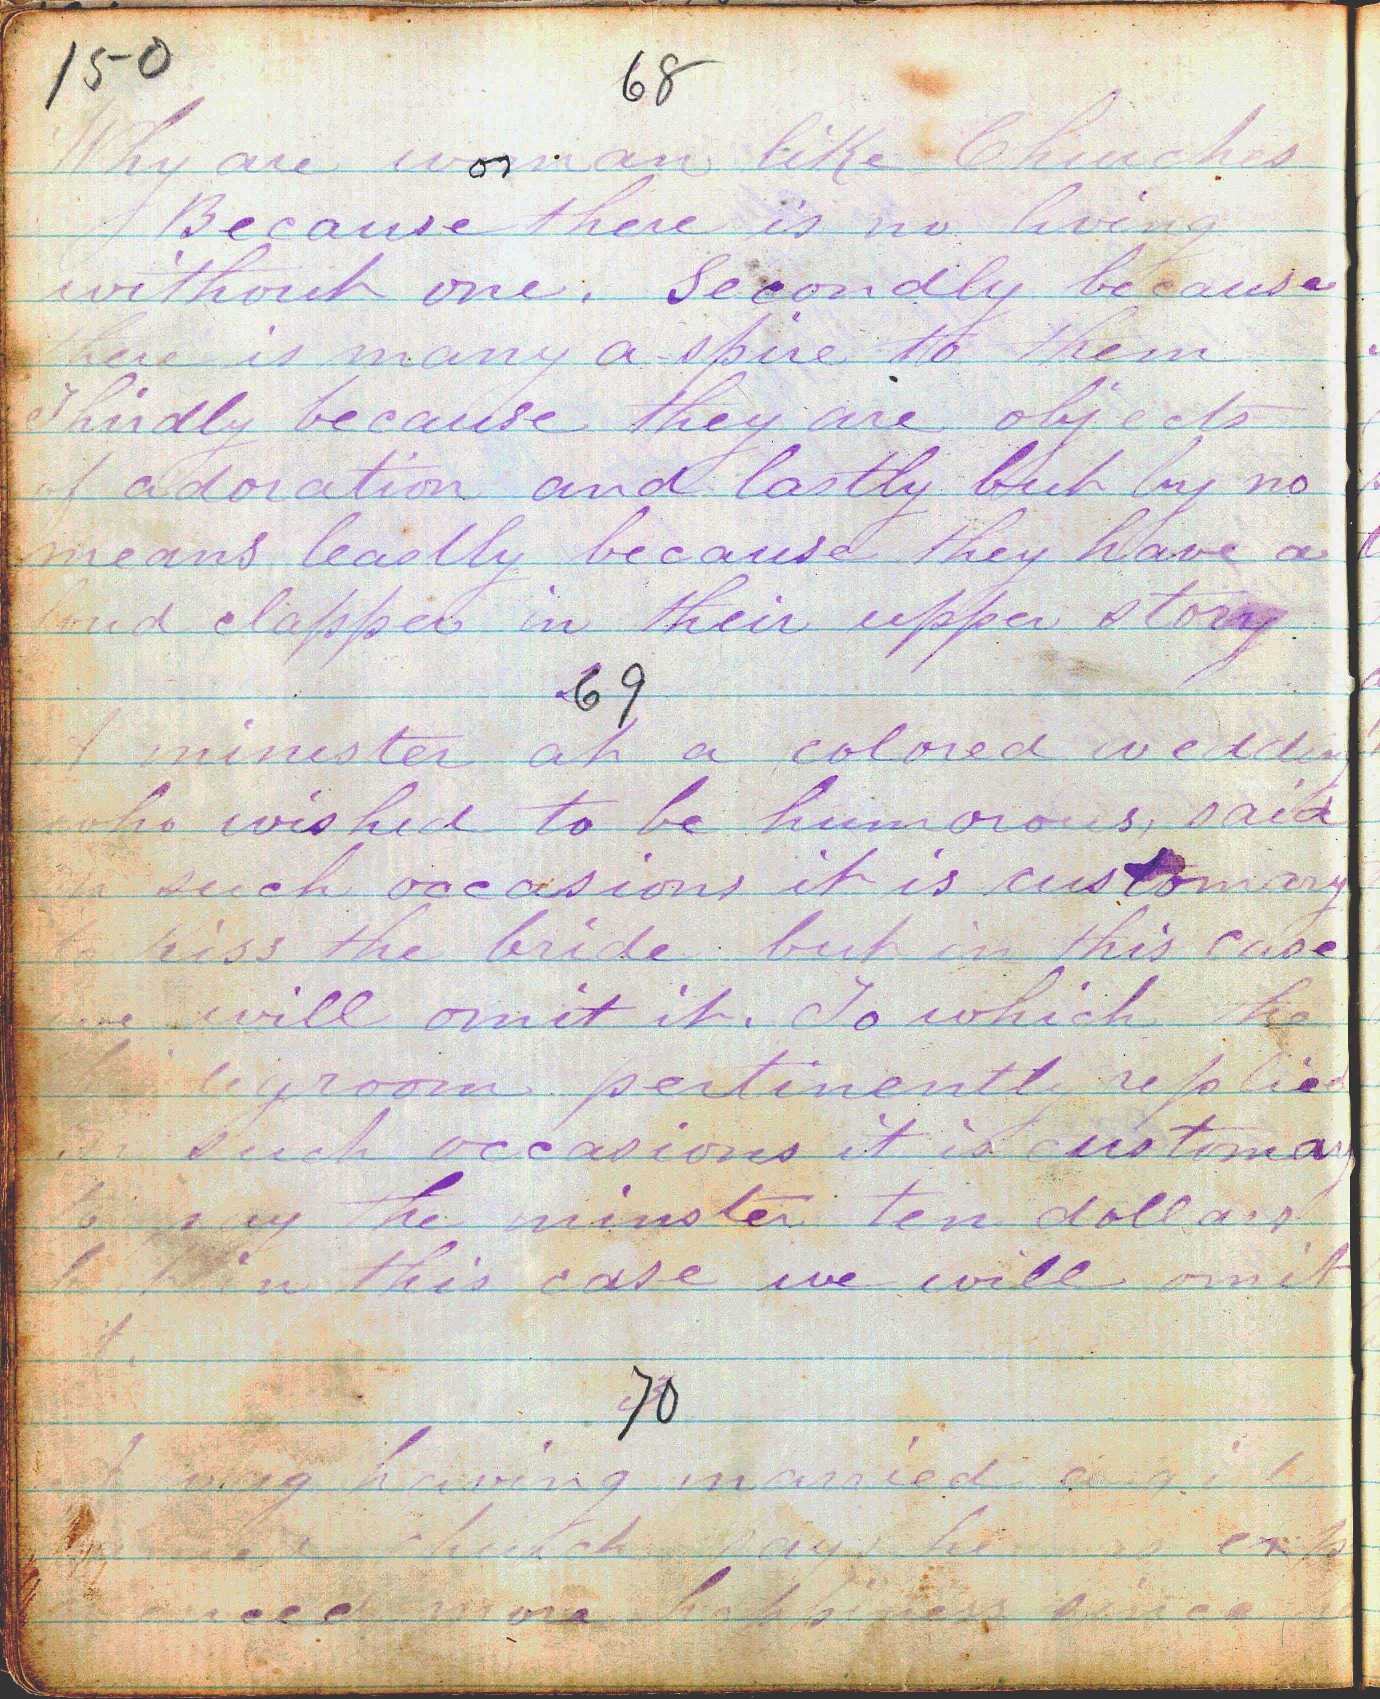 150
68
Why are woman like Churches
Because there is no living
without one. Secondly because
there is many a spire to them
Thirdly because they are objects
of adoration and lastly but by no
means leastly because they have a
loud clapper in their upper story
69
A minister at a colored wedding
who wished to be humorous, said
on such occasions it is customary
to kiss the bride but in this case
we will omit it. To which the
bridegroom pertinently replied
on such occasions it is customary
to pay the minster ten dollars
but in this case we will omit
it.
70
A wag having married a girl
church says he
more happiness since